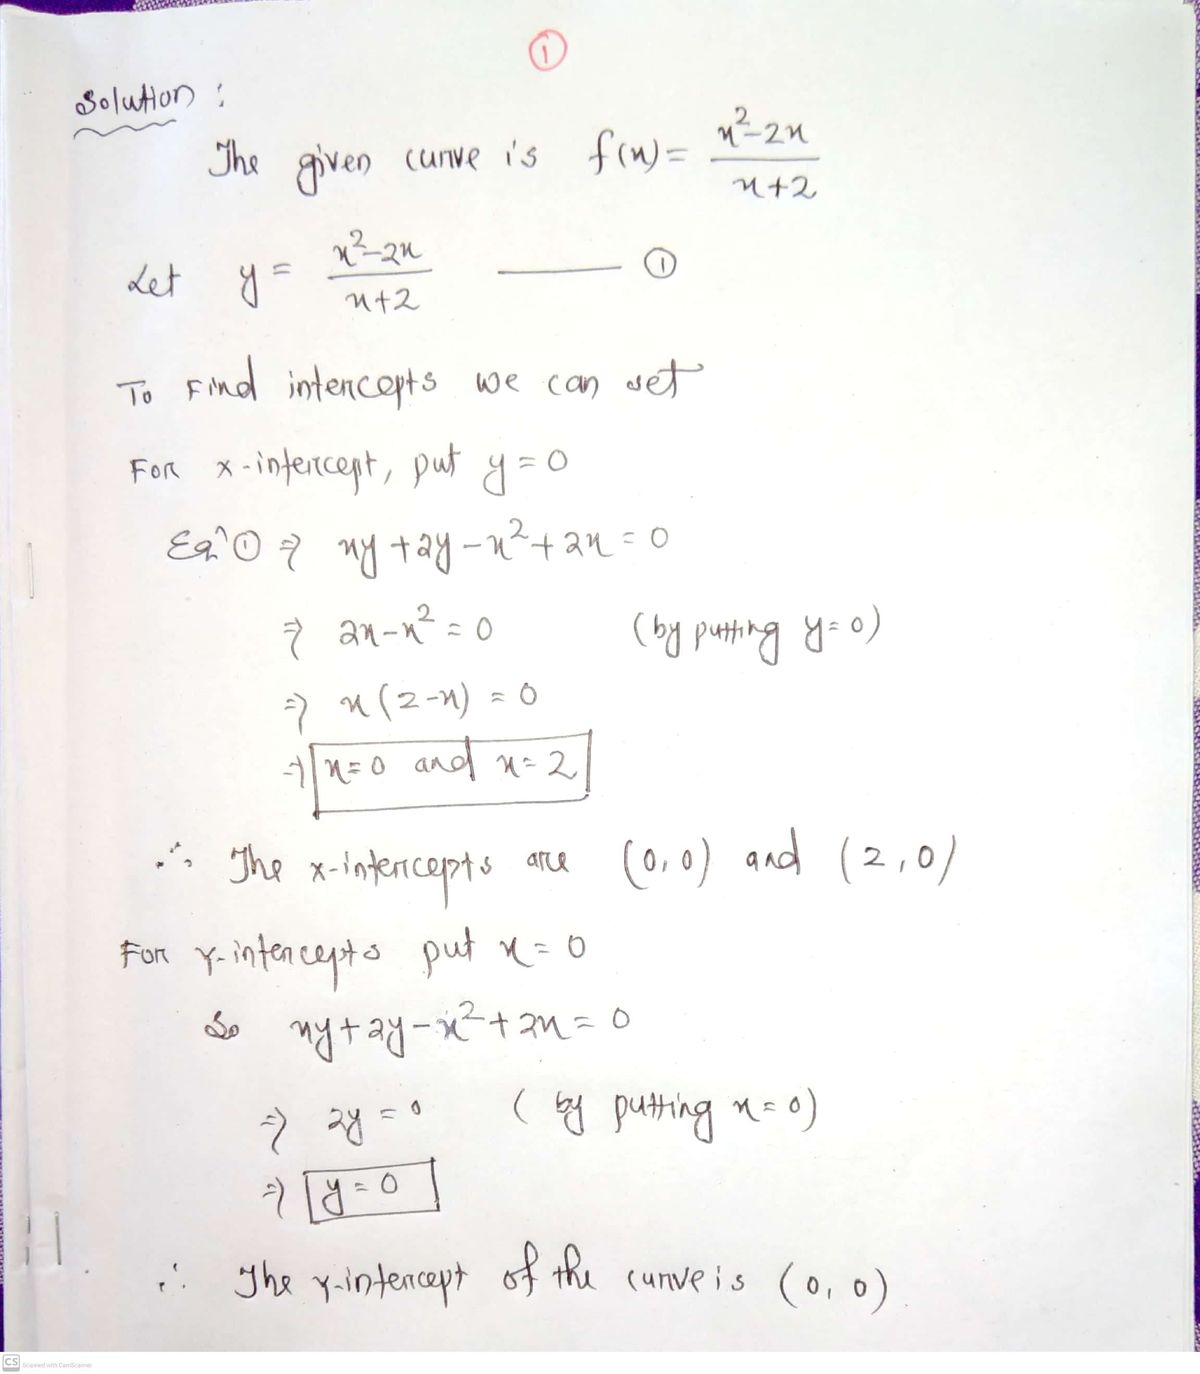 ①
Solution :
The given curve is f(x) = x²-2x / x+2
Let y = x²-2x / x+2 ——— ①
To Find intercepts we can set
For x-intercept, put y = 0
Eqⁿ ① ⇒ xy + 2y - x² + 2x = 0
⇒ 2x - x² = 0 (by putting y = 0)
⇒ x (2-x) = 0
⇒ x = 0 and x = 2
∴ The x-intercepts are (0, 0) and (2, 0)
For Y-intercepts put x = 0
So xy + 2y - x² + 2x = 0
⇒ 2y = 0 (by putting x = 0)
⇒ y = 0
∴ The Y-intercept of the curve is (0, 0)
CS Scanned with CamScanner